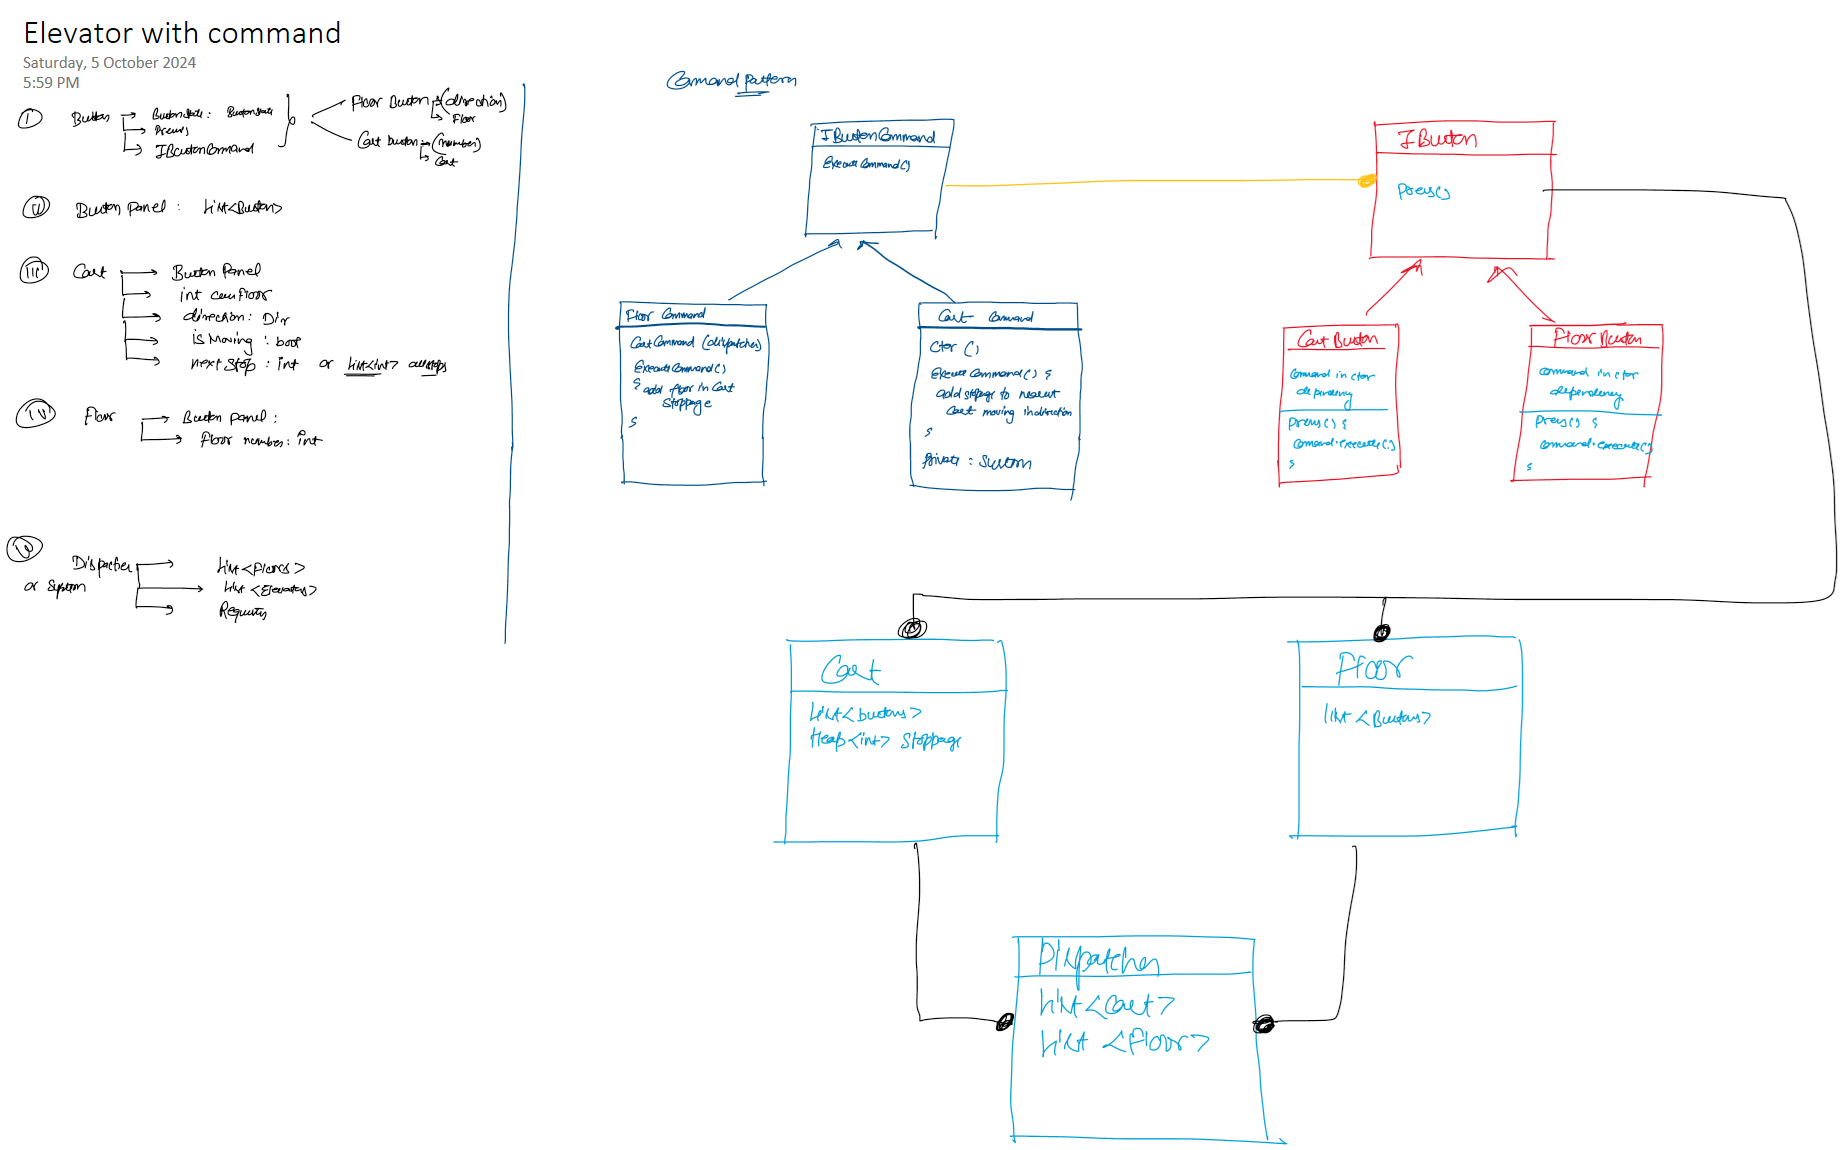 Elevator with command
Saturday, 5 October 2024
5:59 PM
I Button → ButtonState : ButtonState
→ Press
→ IButtonCommand
Floor Button → (direction)
→ Floor
Cart button → (number)
→ Cart
II Button Panel : List<Button>
III Cart → Button Panel
→ int currFloor
→ direction : Dir
→ isMoving : bool
→ nextStop : int or List<int> allstops
IV Floor → Button panel :
→ Floor number : int
V Dispatcher → List<Floors>
or System → List<Elevators>
→ Requests
Command Pattern
IButtonCommand
Execute Command()
Floor Command
CartCommand (dispatcher)
ExecuteCommand()
{ add floor in Cart
Stoppage
}
Cart Command
Ctor ()
Execute Command() {
add stoppage to nearest
Cart moving in direction
}
Private : System
IButton
press()
Cart Button
Command in ctor
dependency
press() {
Command.execute()
}
Floor Button
Command in ctor
dependency
press() {
Command.execute()
}
Cart
List<buttons>
Heap<int> Stoppage
Floor
List<Buttons>
Dispatcher
List<Cart>
List <Floor>